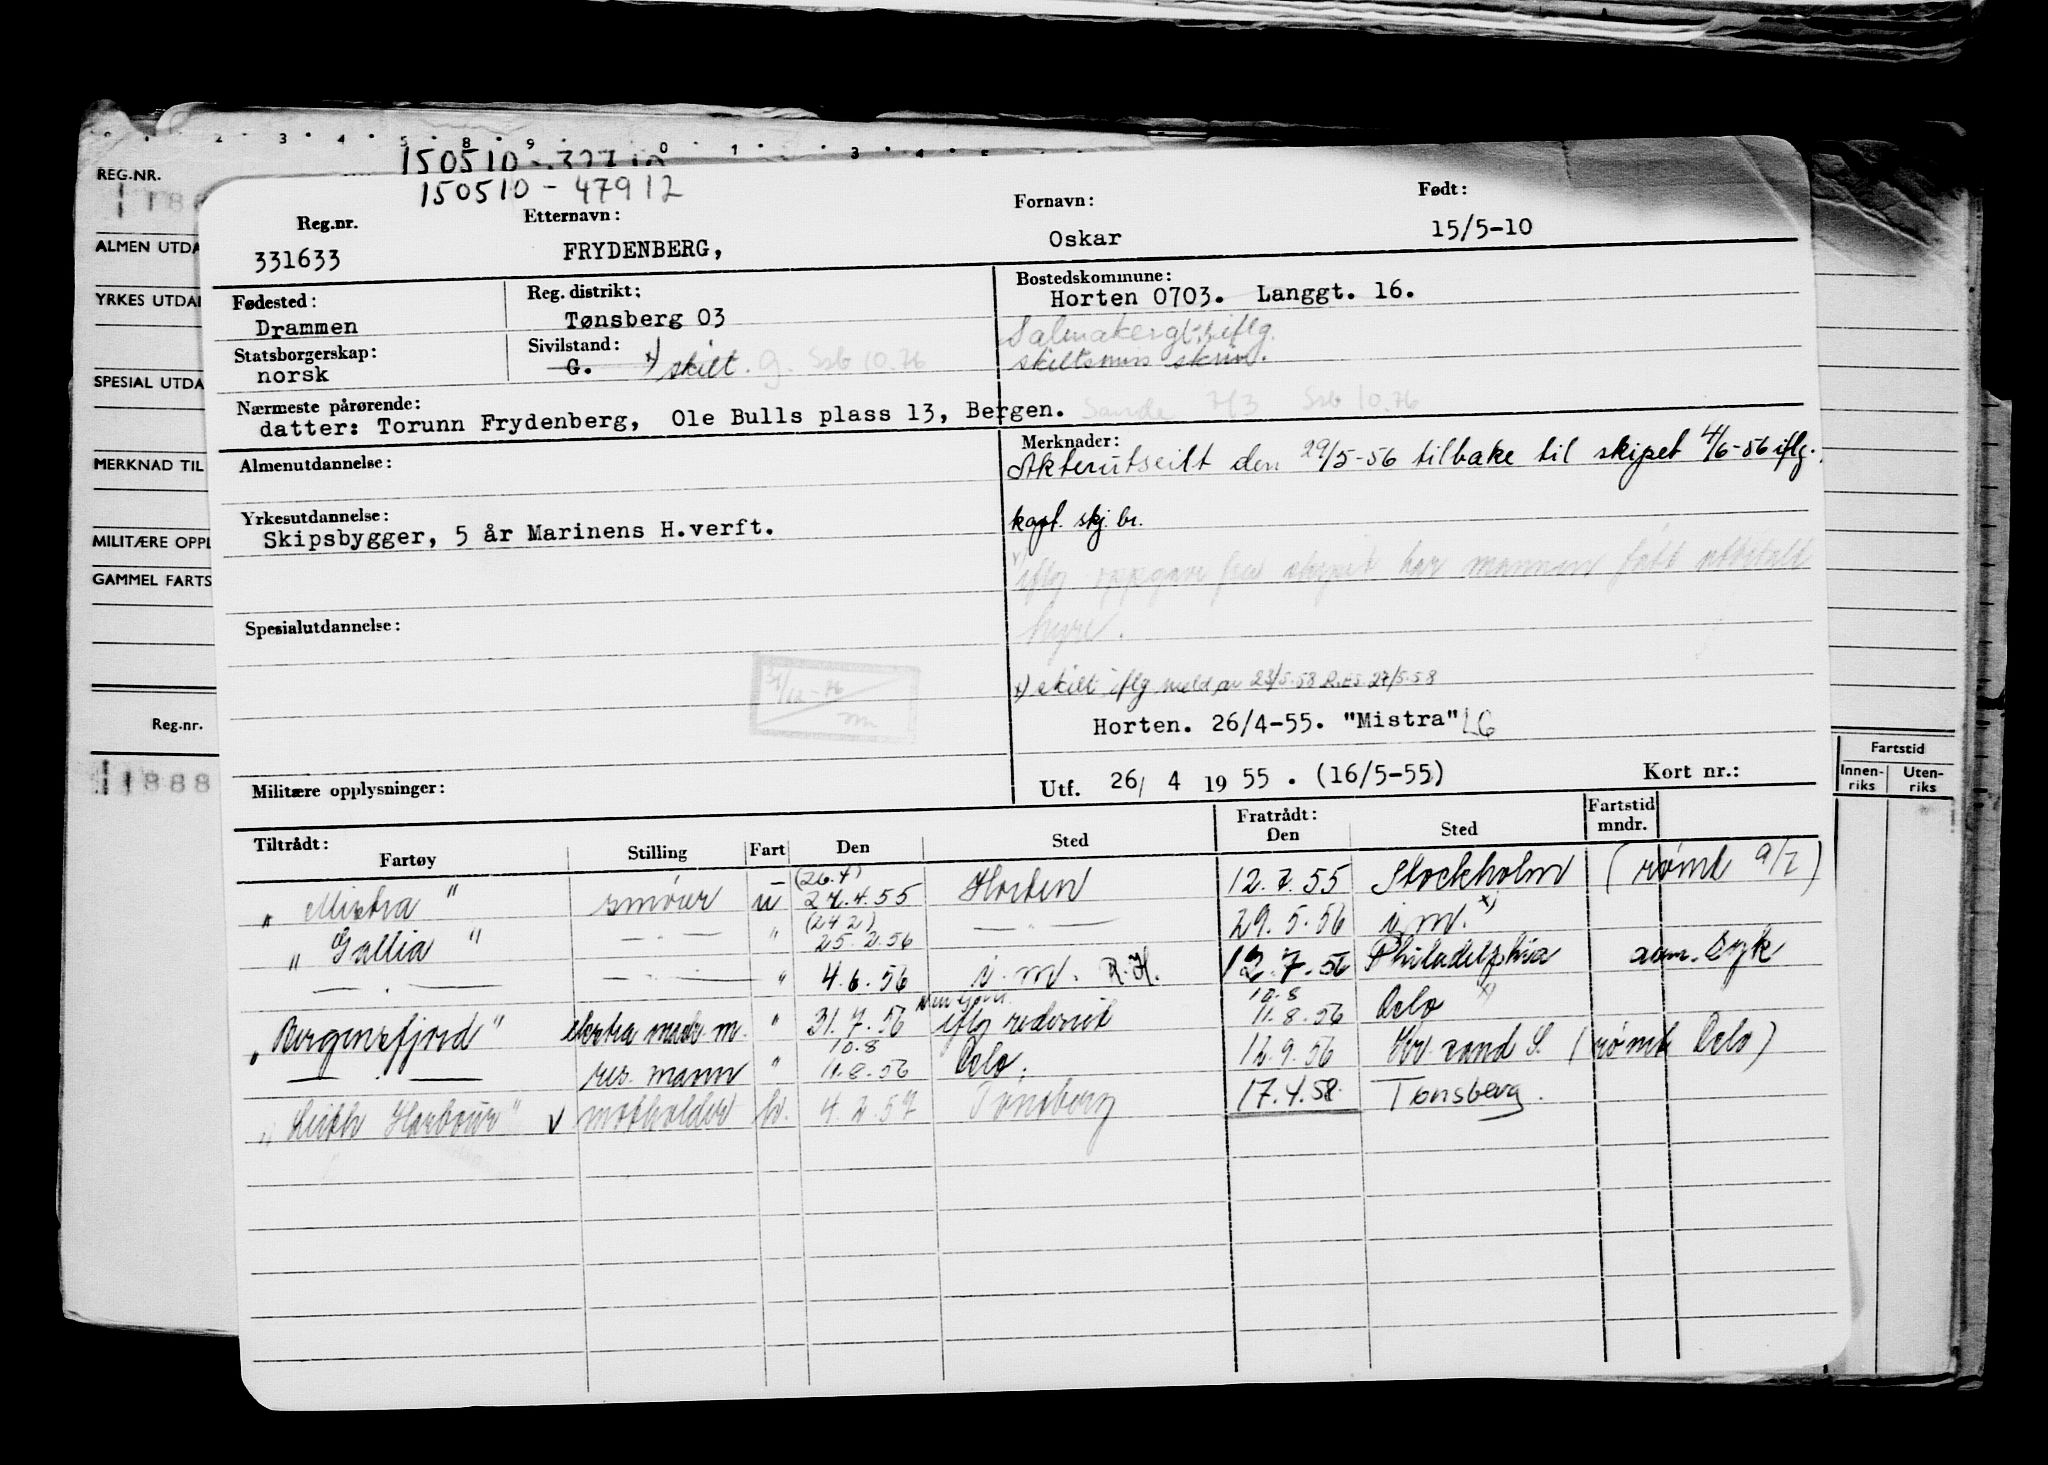 2 3 4 5 8 9 0 1 3 4 5
150510 -
150510 - 47912
REG.NR.
ALMEN UTDA
YRKES UTDA
SPESIAL UTDA
MERKNAD TIL
MILITÆRE OPPL
GAMMEL FARTS
Reg.nr.
11888
Fartstid
Innen-riks Uten-riks
Reg.nr. Etternavn: Fornavn: Født:
331633 FRYDENBERG, Oskar 15/5-10
Fødested: Reg. distrikt: Bostedskommune:
Drammen Tønsberg 03 Horten 0703. Langgt. 16.
Statsborgerskap: Sivilstand: Salmakergt. iflg.
norsk G. x) skilt. g. Ssb 10.76 skiltsmiss skriv.
Nærmeste pårørende:
datter: Torunn Frydenberg, Ole Bulls plass 13, Bergen. Sande 713 Ssb 10.76
Almenutdannelse: Merknader:
Akterutseilt den 29/5-56 tilbake til skipet 4/6-56 iflg.
Yrkesutdannelse: kapt. skj. br.
Skipsbygger, 5 år Marinens H.verft.
v) iflg oppgave fra skipet har mannen fått utbetalt
Spesialutdannelse: hyre.
31/12-76
x) skilt iflg meld av 23/5.58 R.ES. 27/5.58
Horten. 26/4-55. "Mistra" LG
Militære opplysninger: Utf. 26/ 4 1955. (16/5-55) Kort nr.:
Tiltrådt: Fratrådt: Fartstid mndr.
Fartøy Stilling Fart Den Sted Den Sted
(26.4)
"Mistra" smører u 27.4.55 Horten 12.7.55 Stockholm (rømt 9/7)
(24 2)
"Gallia" — " — " 25.2.56 — " — 29.5.56 i.m. x)
— " — " 4.6.56 i.m. R.H. 12.7.56 Philadelphia avm. syk
10.8
"Bergensfjord" ekstra mask. m. " 31.7.56 New York iflg rederiet 11.8.56 Oslo x)
10.8
— " — res. mann " 11.8.56 Oslo. 12.9.56 Kr. sand S. (rømt Oslo)
"Leith Harbour" v motholder hv. 4.2.57 Tønsberg 17.4.58. Tønsberg.